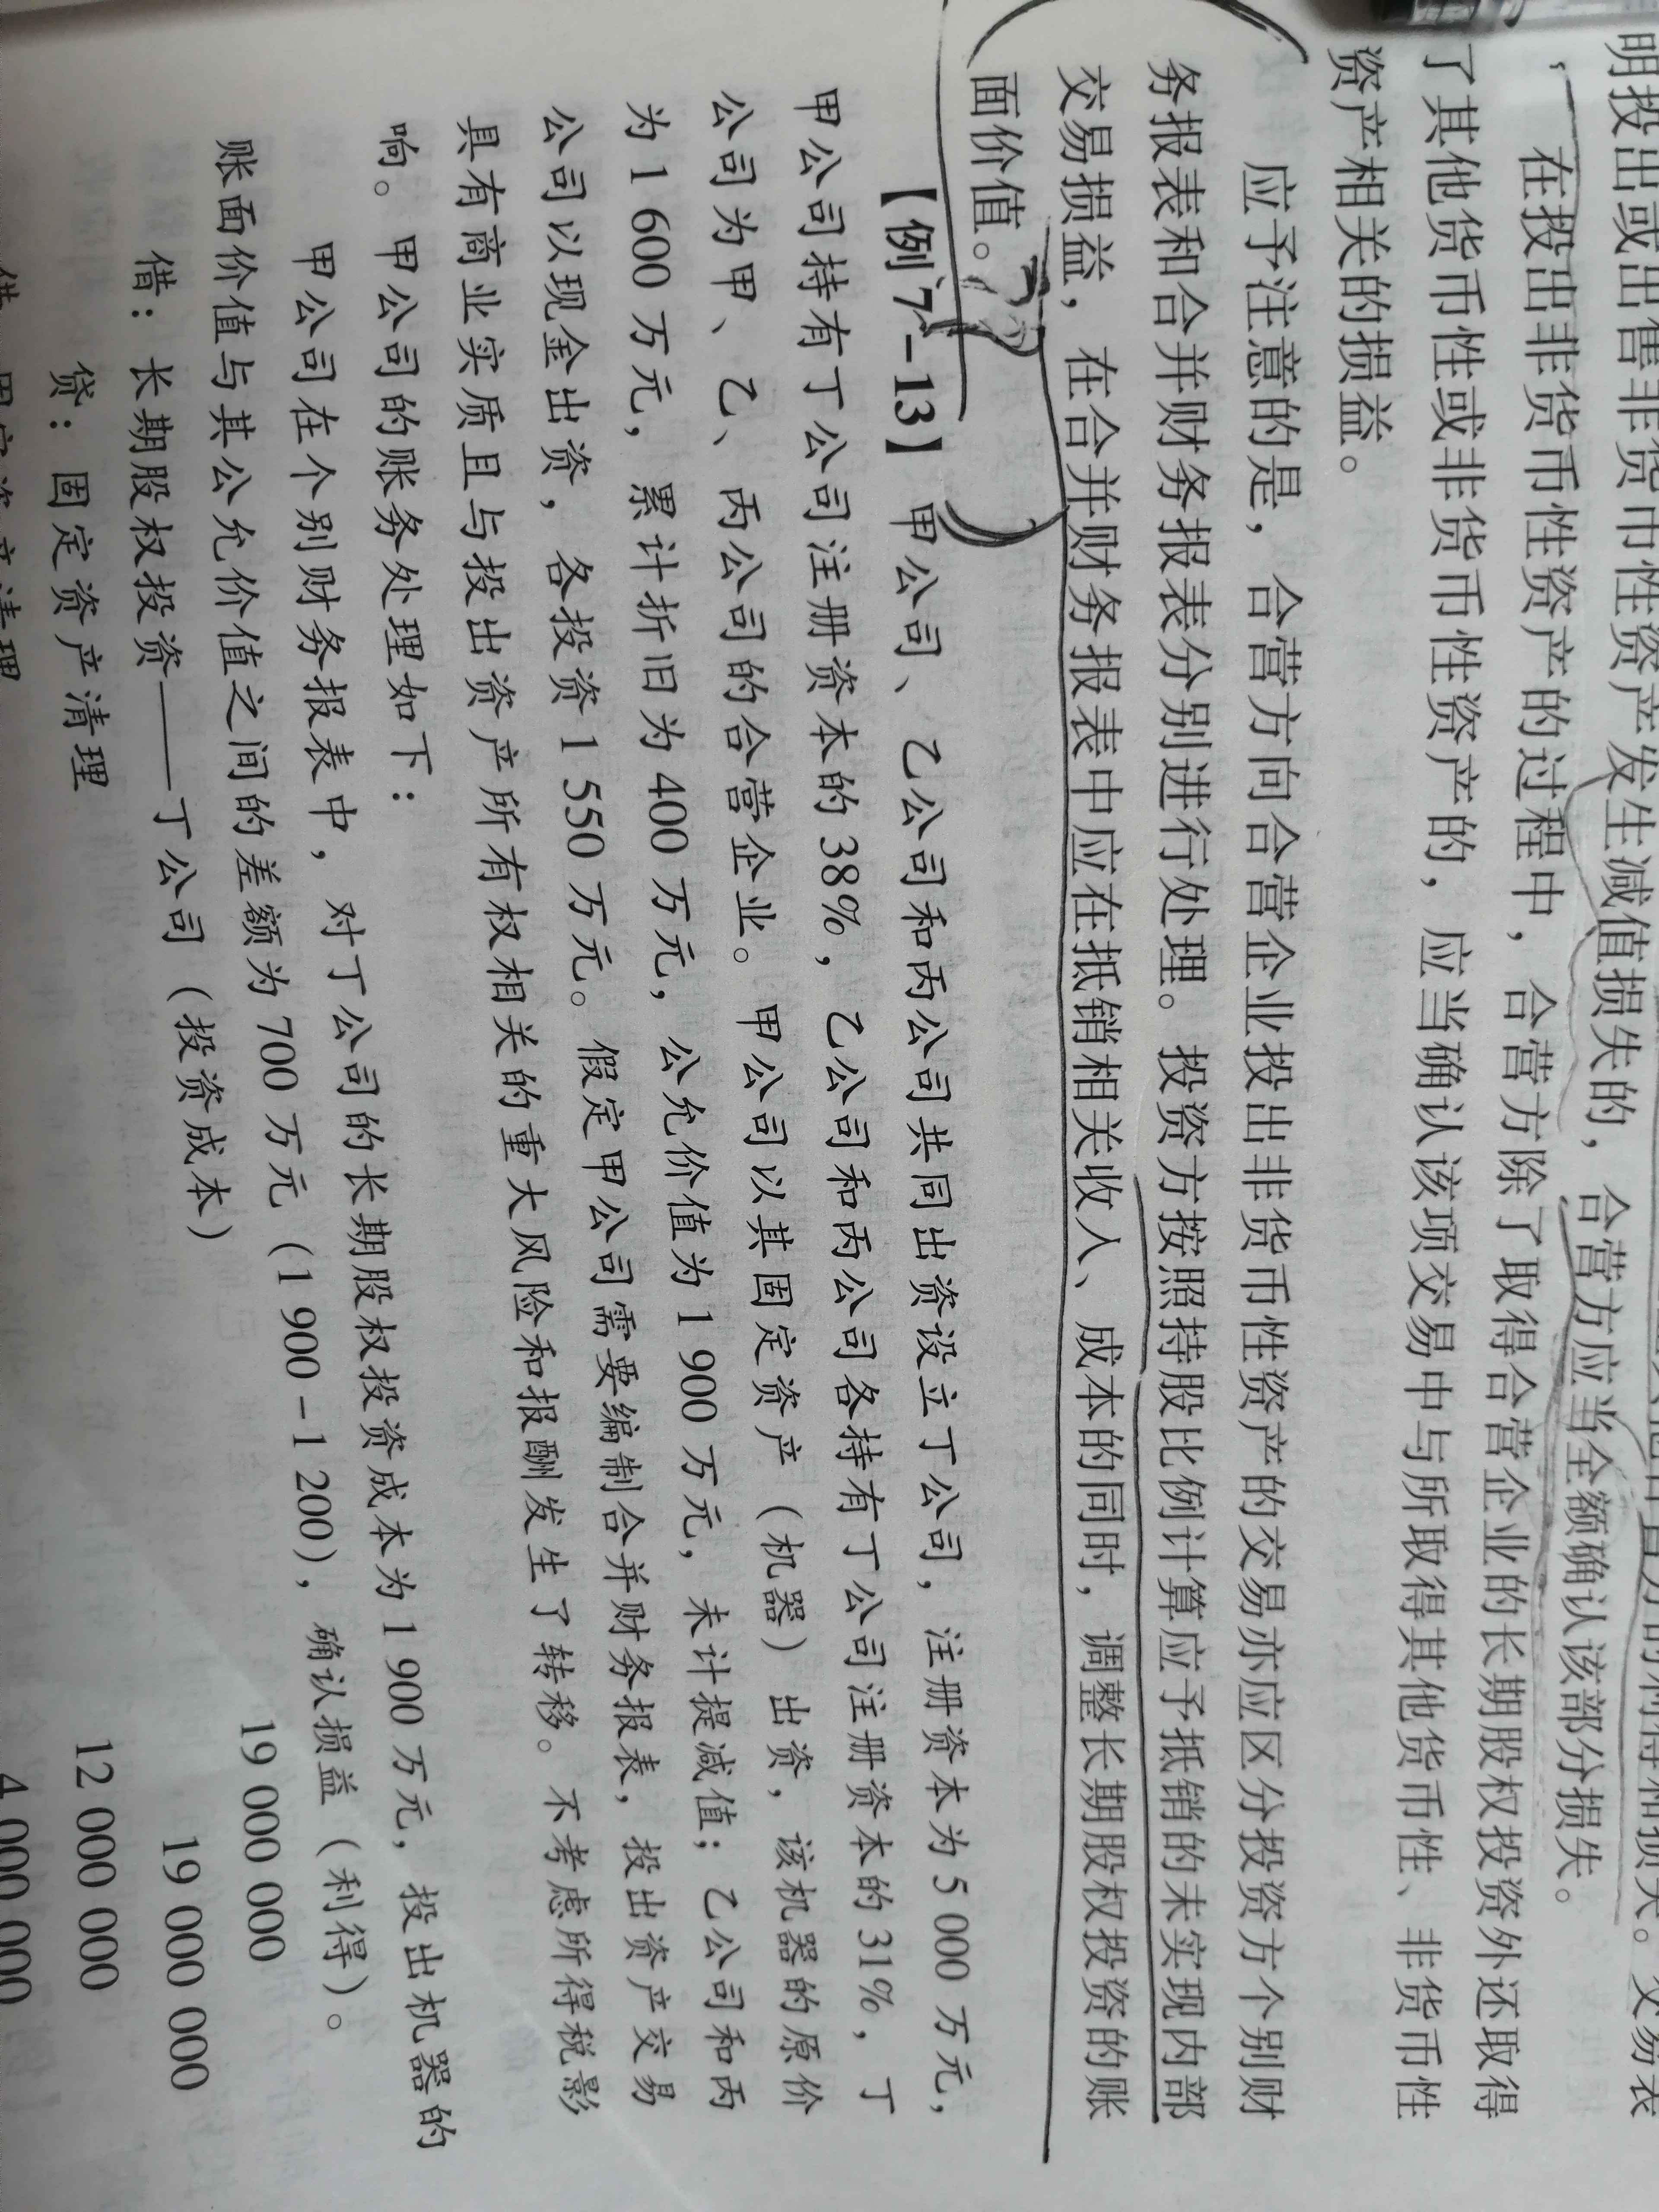 明投出或出售非货币性资产发生减值损失的，合营方应当全额确认该部分损失。
在投出非货币性资产的过程中，合营方除了取得合营企业的长期股权投资外还取得
了其他货币性或非货币性资产的，应当确认该项交易中与所取得其他货币性、非货币性
资产相关的损益。
应予注意的是，合营方向合营企业投出非货币性资产的交易亦应区分投资方个别财
务报表和合并财务报表分别进行处理。投资方按照持股比例计算应予抵销的未实现内部
交易损益，在合并财务报表中应在抵销相关收入、成本的同时，调整长期股权投资的账
面价值。
【例7-13】 甲公司、乙公司和丙公司共同出资设立丁公司，注册资本为5 000万元，
甲公司持有丁公司注册资本的38%，乙公司和丙公司各持有丁公司注册资本的31%，丁
公司为甲、乙、丙公司的合营企业。甲公司以其固定资产（机器）出资，该机器的原价
为1 600万元，累计折旧为400万元，公允价值为1 900万元，未计提减值；乙公司和丙
公司以现金出资，各投资1 550万元。假定甲公司需要编制合并财务报表，投出资产交易
具有商业实质且与投出资产所有权相关的重大风险和报酬发生了转移。不考虑所得税影
响。甲公司的账务处理如下：
甲公司在个别财务报表中，对丁公司的长期股权投资成本为1 900万元，投出机器的
账面价值与其公允价值之间的差额为700万元（1 900-1 200），确认损益（利得）。
借：长期股权投资——丁公司（投资成本） 19 000 000
贷：固定资产清理 19 000 000
借：固定资产清理 12 000 000
4 000 000